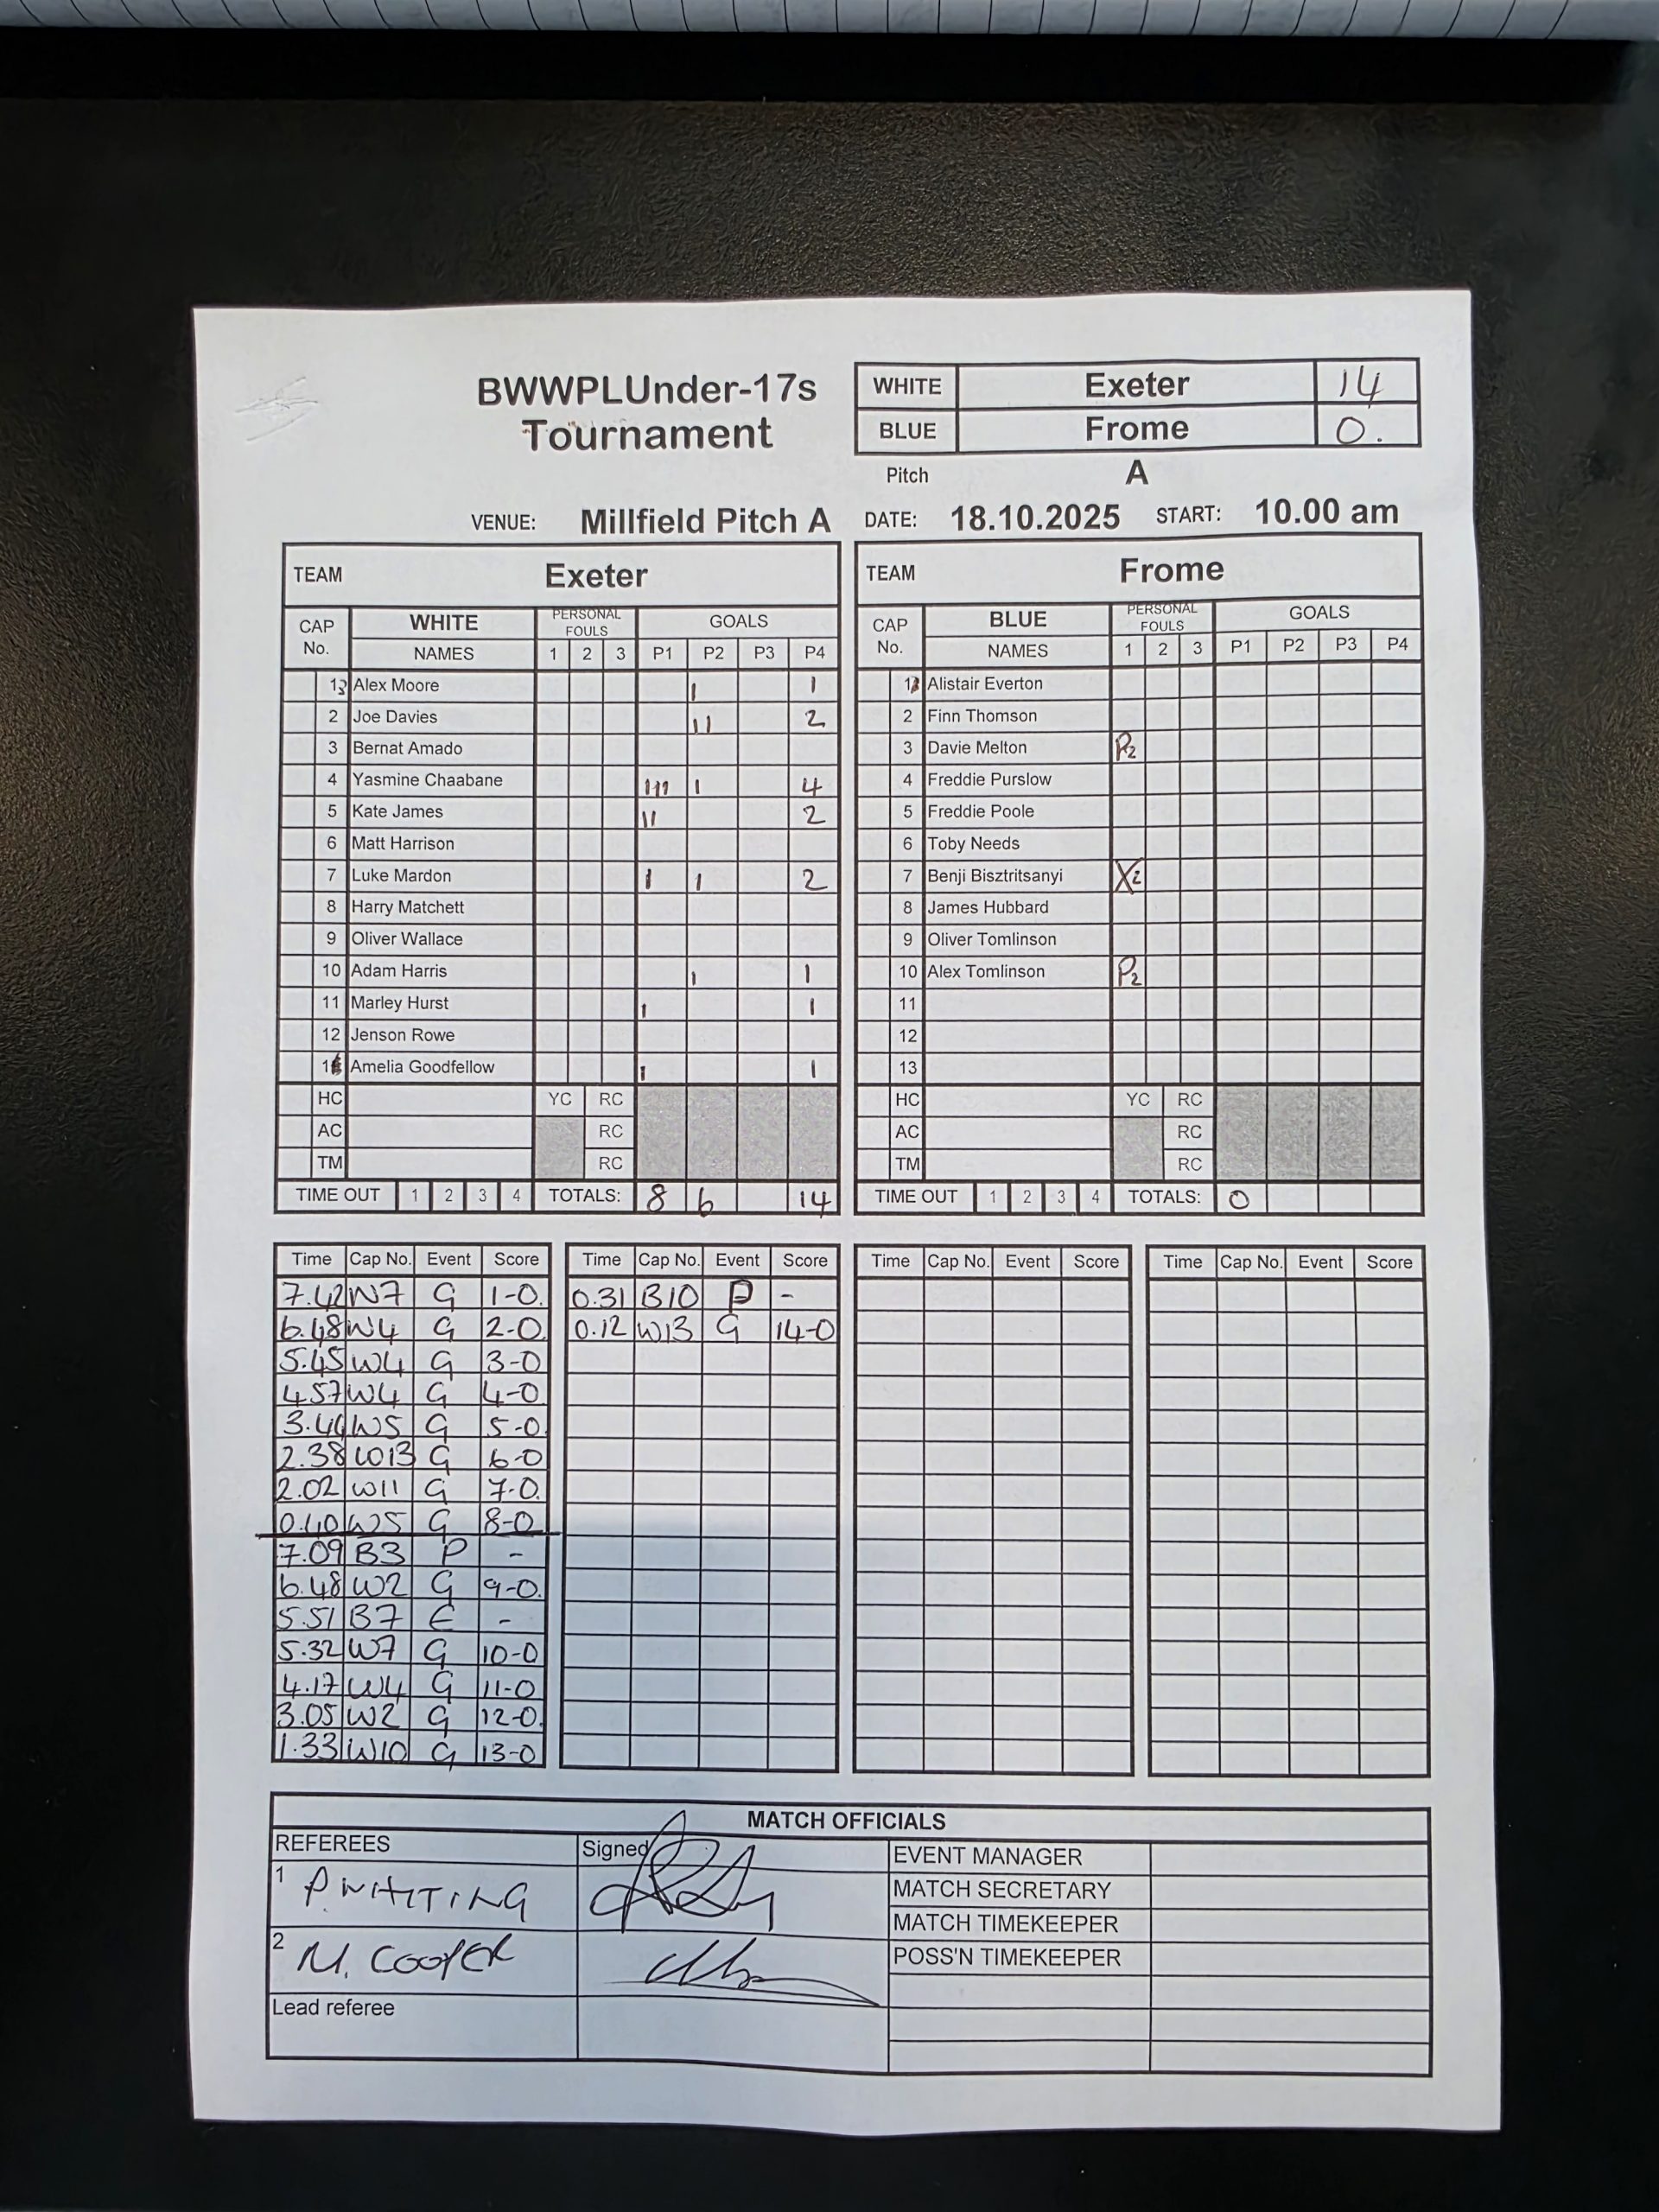 BWWPLUnder-17s
Tournament
WHITE Exeter 14
BLUE Frome 0.
Pitch A
VENUE: Millfield Pitch A DATE: 18.10.2025 START: 10.00 am
TEAM Exeter
CAP No. WHITE NAMES PERSONAL FOULS 1 2 3 GOALS P1 P2 P3 P4
13 Alex Moore I 1
2 Joe Davies II 2
3 Bernat Amado
4 Yasmine Chaabane III I 4
5 Kate James II 2
6 Matt Harrison
7 Luke Mardon I I 2
8 Harry Matchett
9 Oliver Wallace
10 Adam Harris I 1
11 Marley Hurst I 1
12 Jenson Rowe
1 Amelia Goodfellow I 1
HC YC RC
AC RC
TM RC
TIME OUT 1 2 3 4 TOTALS: 8 6 14
TEAM Frome
CAP No. BLUE NAMES PERSONAL FOULS 1 2 3 GOALS P1 P2 P3 P4
1 Alistair Everton
2 Finn Thomson
3 Davie Melton P2
4 Freddie Purslow
5 Freddie Poole
6 Toby Needs
7 Benji Bisztritsanyi X2
8 James Hubbard
9 Oliver Tomlinson
10 Alex Tomlinson P2
11
12
13
HC YC RC
AC RC
TM RC
TIME OUT 1 2 3 4 TOTALS: 0
Time Cap No. Event Score
7.42 W7 G 1-0.
6.48 W4 G 2-0
5.45 W4 G 3-0
4.57 W4 G 4-0
W5 G 5-0
2.38 W13 G 6-0
2.02 W11 G 7-0.
0.40 W5 G 8-0
7.09 B3 P -
6.48 W2 G 9-0.
5.51 B7 E -
5.32 W7 G 10-0
4.17 W4 G 11-0
3.05 W2 G 12-0.
1.33 W10 G 13-0
Time Cap No. Event Score
0.31 B10 P -
0.12 W13 G 14-0
Time Cap No. Event Score
Time Cap No. Event Score
MATCH OFFICIALS
REFEREES Signed
1 P.WHITING
2 M. COOPER
Lead referee
EVENT MANAGER
MATCH SECRETARY
MATCH TIMEKEEPER
POSS'N TIMEKEEPER